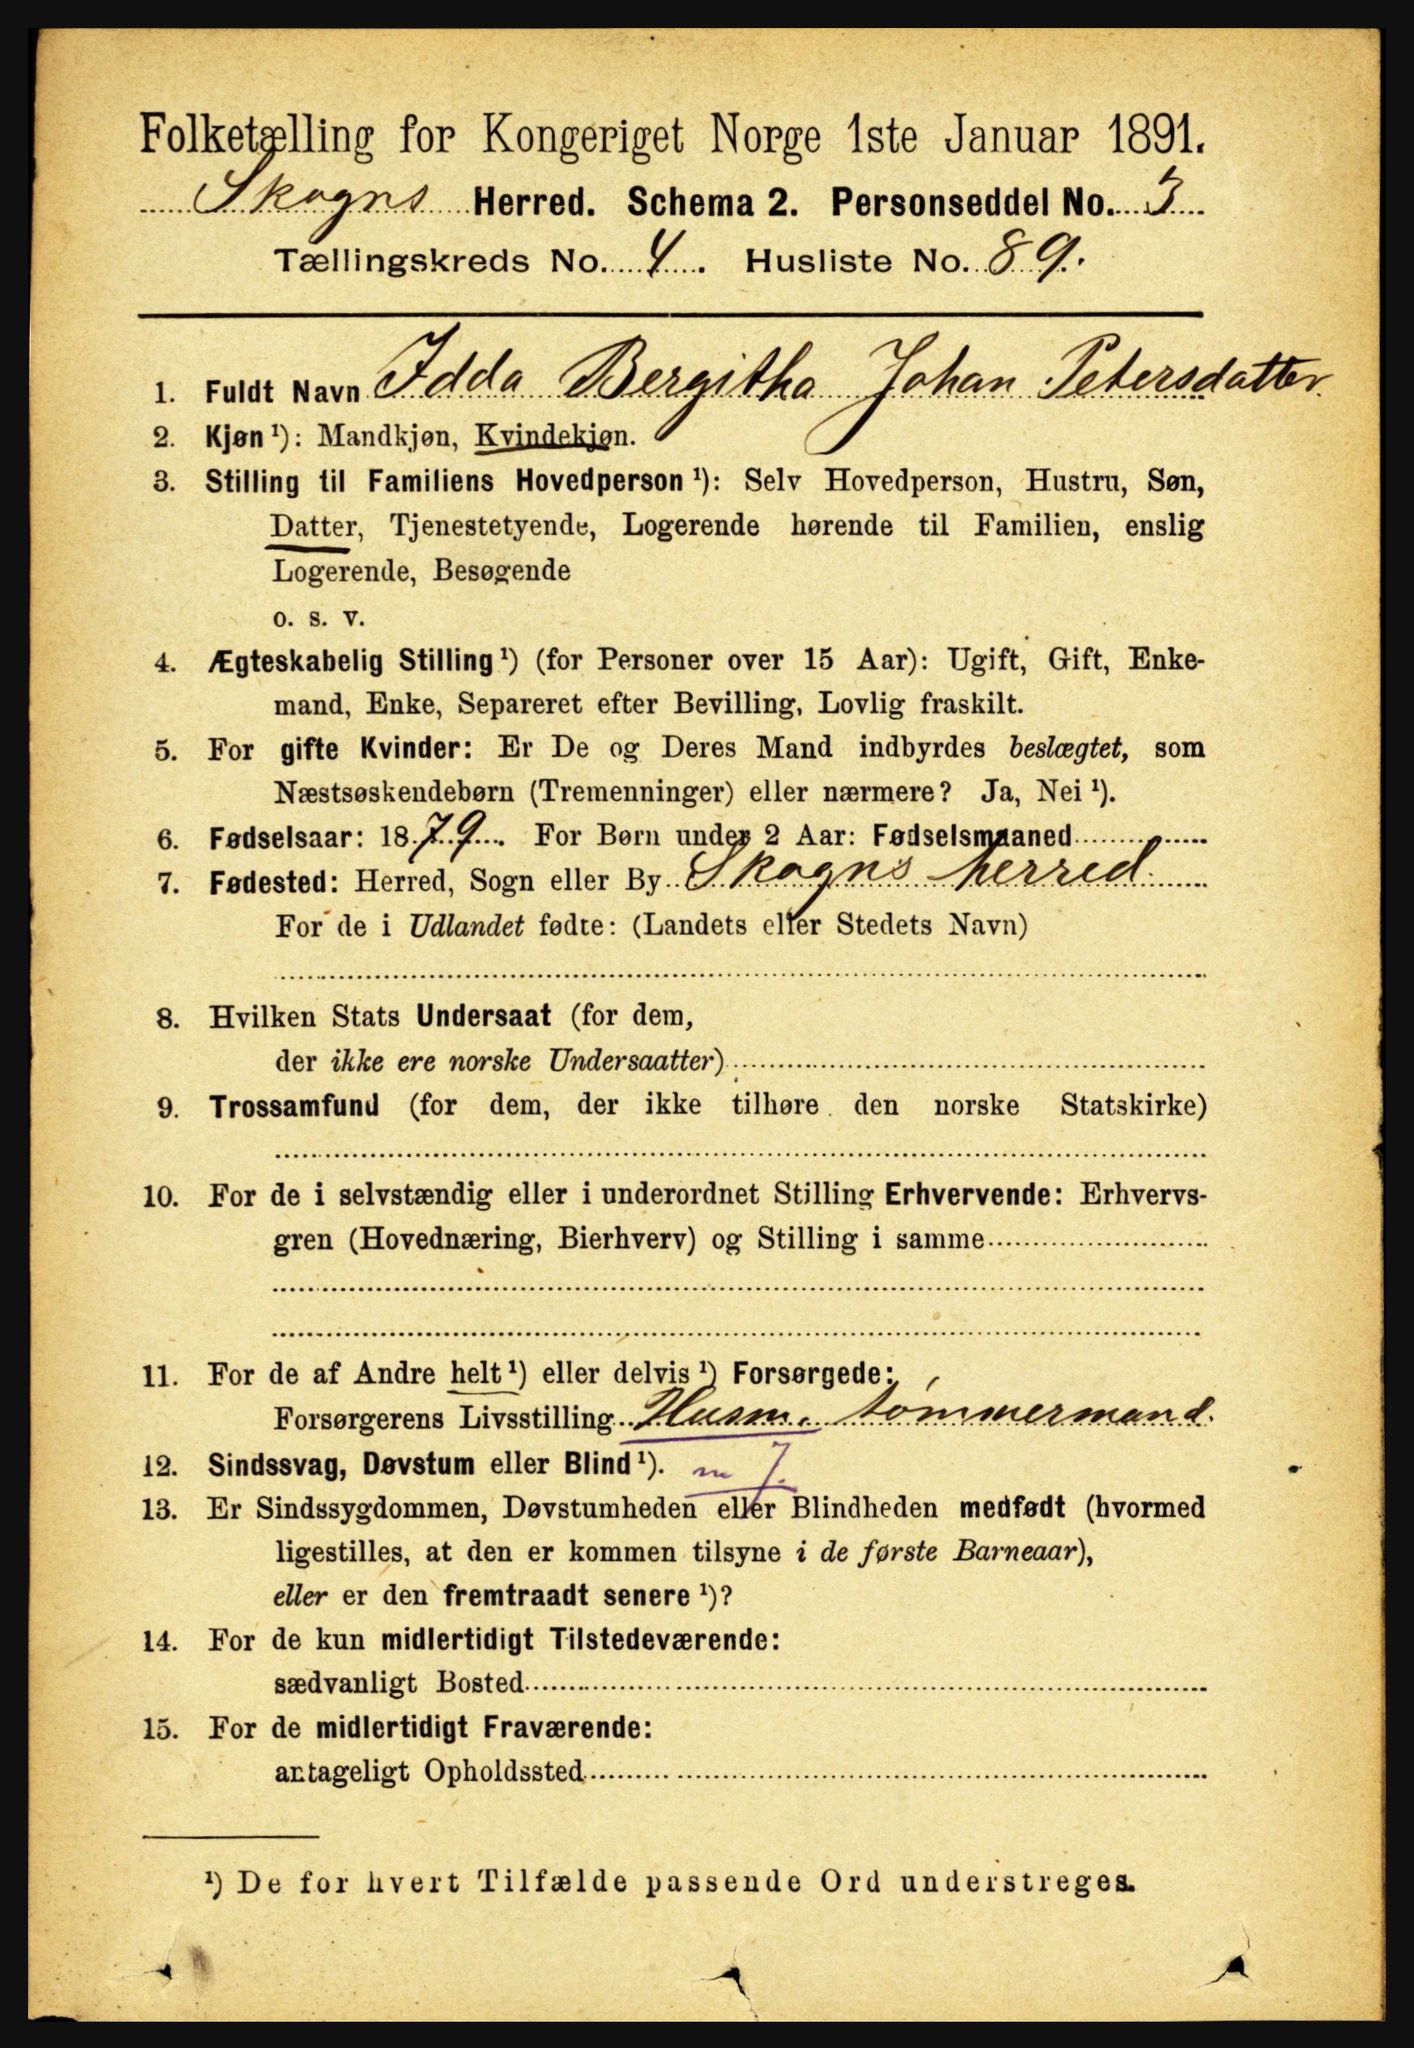 Folketælling for Kongeriget Norge 1ste Januar 1891.
Skogns Herred. Schema 2. Personseddel No. 3
Tællingskreds No. 4. Husliste No. 89.
1. Fuldt Navn Idda Bergitha Johan Petersdatter
2. Kjøn ¹): Mandkjøn, Kvindekjøn.
3. Stilling til Familiens Hovedperson ¹): Selv Hovedperson, Hustru, Søn,
Datter, Tjenestetyende, Logerende hørende til Familien, enslig
Logerende, Besøgende
o. s. v.
4. Ægteskabelig Stilling ¹) (for Personer over 15 Aar): Ugift, Gift, Enke-
mand, Enke, Separeret efter Bevilling, Lovlig fraskilt.
5. For gifte Kvinder: Er De og Deres Mand indbyrdes beslægtet, som
Næstsøskendebørn (Tremenninger) eller nærmere? Ja, Nei ¹).
6. Fødselsaar: 1879. For Børn under 2 Aar: Fødselsmaaned
7. Fødested: Herred, Sogn eller By Skogns herred.
For de i Udlandet fødte: (Landets eller Stedets Navn)
8. Hvilken Stats Undersaat (for dem,
der ikke ere norske Undersaatter)
9. Trossamfund (for dem, der ikke tilhøre den norske Statskirke)
10. For de i selvstændig eller i underordnet Stilling Erhvervende: Erhvervs-
gren (Hovednæring, Bierhverv) og Stilling i samme
11. For de af Andre helt ¹) eller delvis ¹) Forsørgede:
Forsørgerens Livsstilling Husm. tømmermand.
12. Sindssvag, Døvstum eller Blind ¹). m J.
13. Er Sindssygdommen, Døvstumheden eller Blindheden medfødt (hvormed
ligestilles, at den er kommen tilsyne i de første Barneaar),
eller er den fremtraadt senere ¹)?
14. For de kun midlertidigt Tilstedeværende:
sædvanligt Bosted
15. For de midlertidigt Fraværende:
antageligt Opholdssted
¹) De for hvert Tilfælde passende Ord understreges.